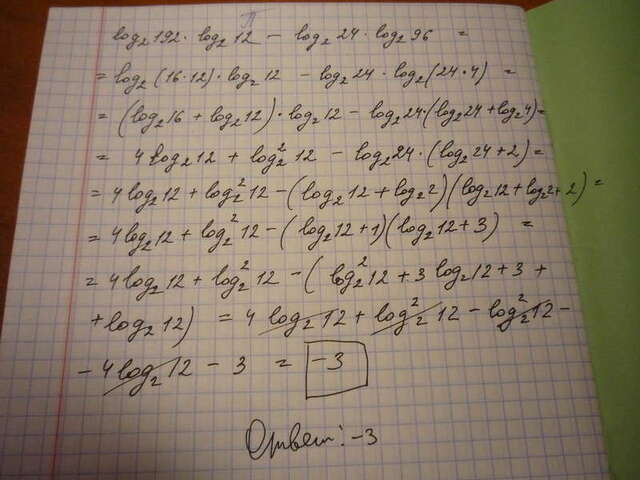 П
log₂192 · log₂12 - log₂24 · log₂96 =
= log₂(16·12) · log₂12 - log₂24 · log₂(24·4) =
= (log₂16 + log₂12) · log₂12 - log₂24·(log₂24 + log₂4) =
= 4log₂12 + log₂²12 - log₂24·(log₂24 + 2) =
= 4log₂12 + log₂²12 - (log₂12 + log₂2)(log₂12 + log₂2 + 2) =
= 4log₂12 + log₂²12 - (log₂12 + 1)(log₂12 + 3) =
= 4log₂12 + log₂²12 - (log₂²12 + 3log₂12 + 3 +
+ log₂12) = 4log₂12 + log₂²12 - log₂²12 -
- 4log₂12 - 3 = -3
Ответ: -3